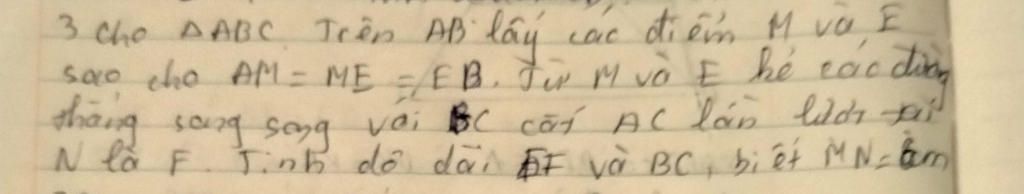 3 cho ΔABC. Trên AB lấy các điểm M và E
sao cho AM = ME = EB. Từ M và E kẻ các đường
thẳng song song với BC cắt AC lần lượt tại
N là F. Tính độ dài EF và BC, biết MN =